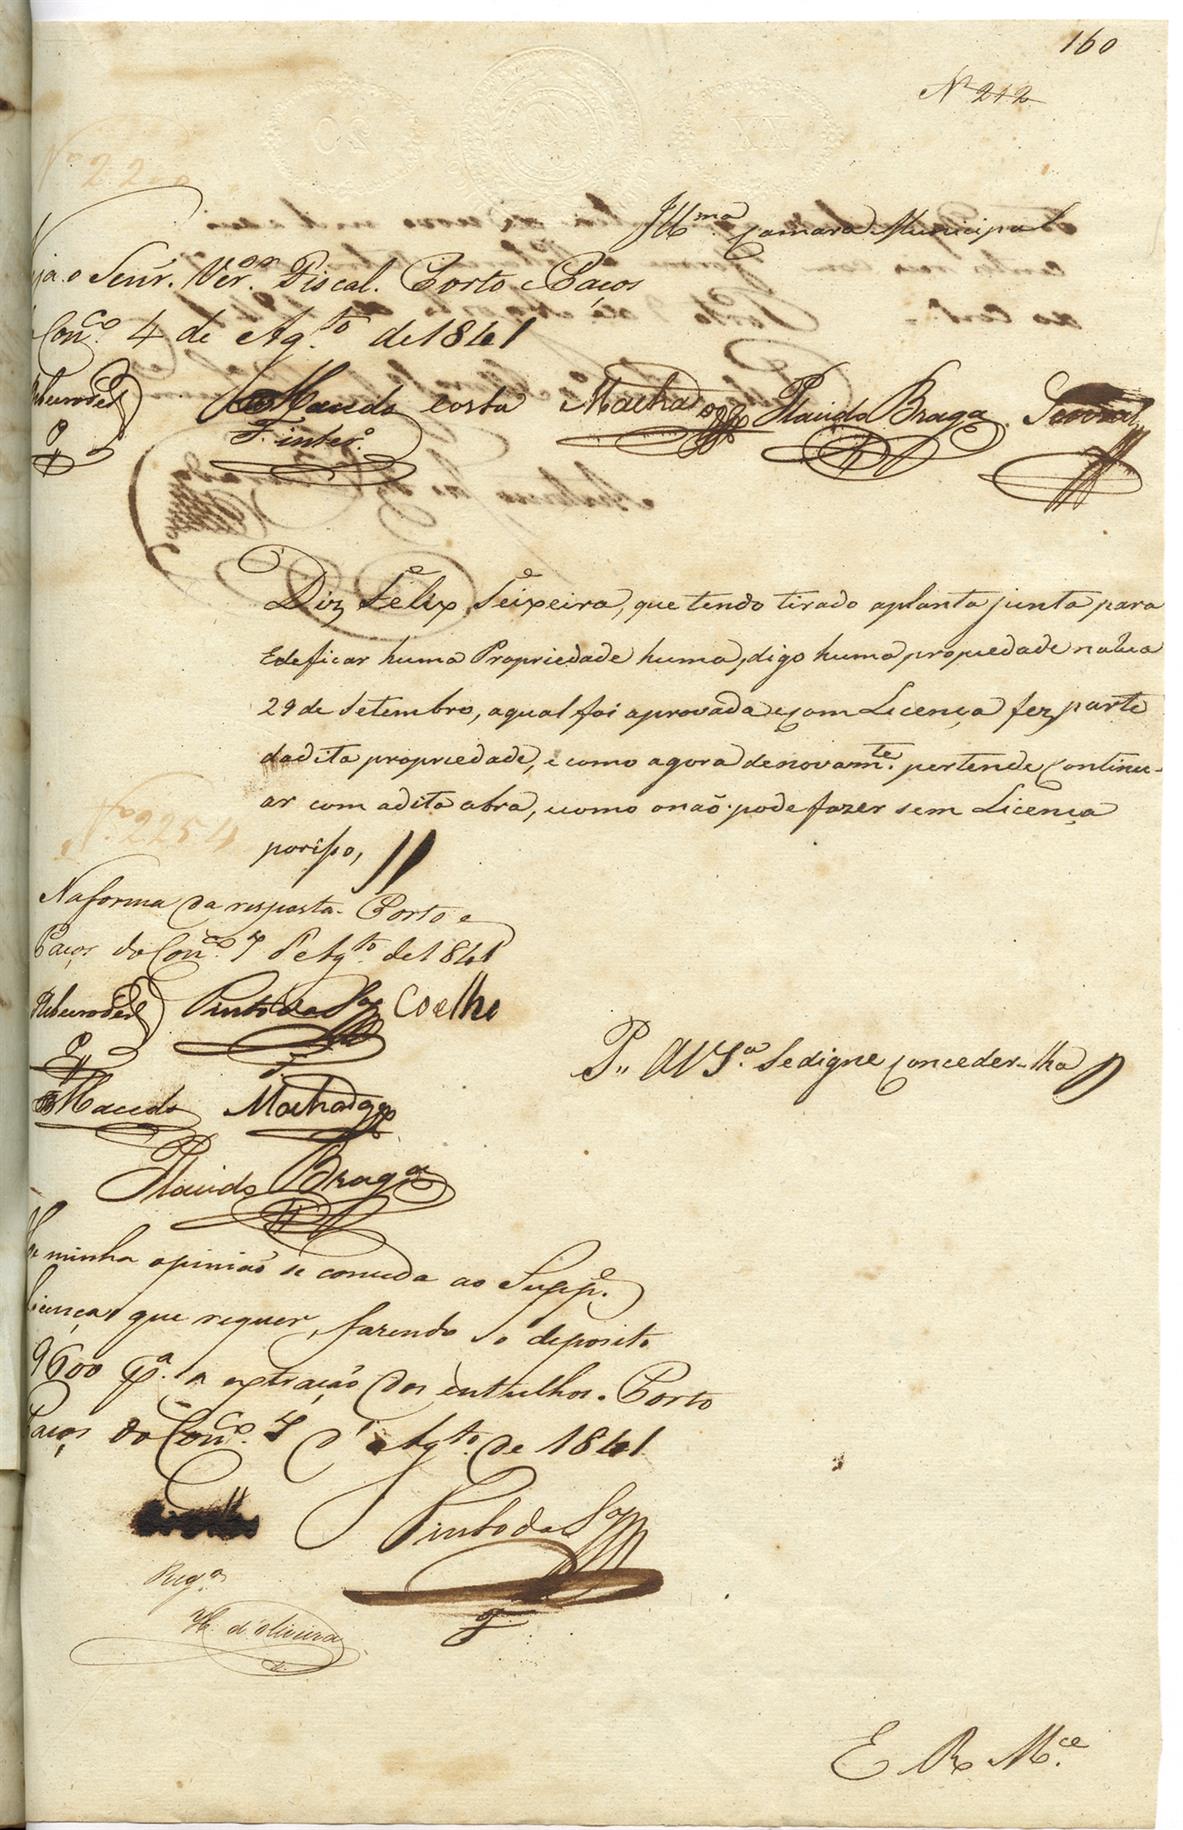 160
Nº 212
Illma Camara Municipal
o Senr. Veror Fiscal. Porto e Paços
Conco 4 de Agto de 1841
Macedo Costa Machado Placido Braga
F. intero.
Diz Felix Teixeira, que tendo tirado aplanta junta para
Edeficar huma Propriedade huma, digo huma propriedade na rua
29 de Setembro, aqual foi aprovada e com Licença fez parte
dadita propriedade, e como agora denovamte. pertende continu-
ar com adita obra, e como onaõ pode fazer sem Licença
Nº 2254
porisso,
Naforma da resposta. Porto e
Paços do Conco 7 d'Agto de 1841
Pinto da Coelho
F.
Macedo Machado
Placido Braga
P.. A V Sa. Sedigne conceder-lha
minha opiniaõ se conceda ao Suppe.
licença que requer, fazendo o deposito
9600 pa. a extracçaõ dos entulhos. Porto
Paços do Conco. 7 d'Agto. de 1841
Pinto da
F
Rega
H. d'Oliveira
E R Mce.